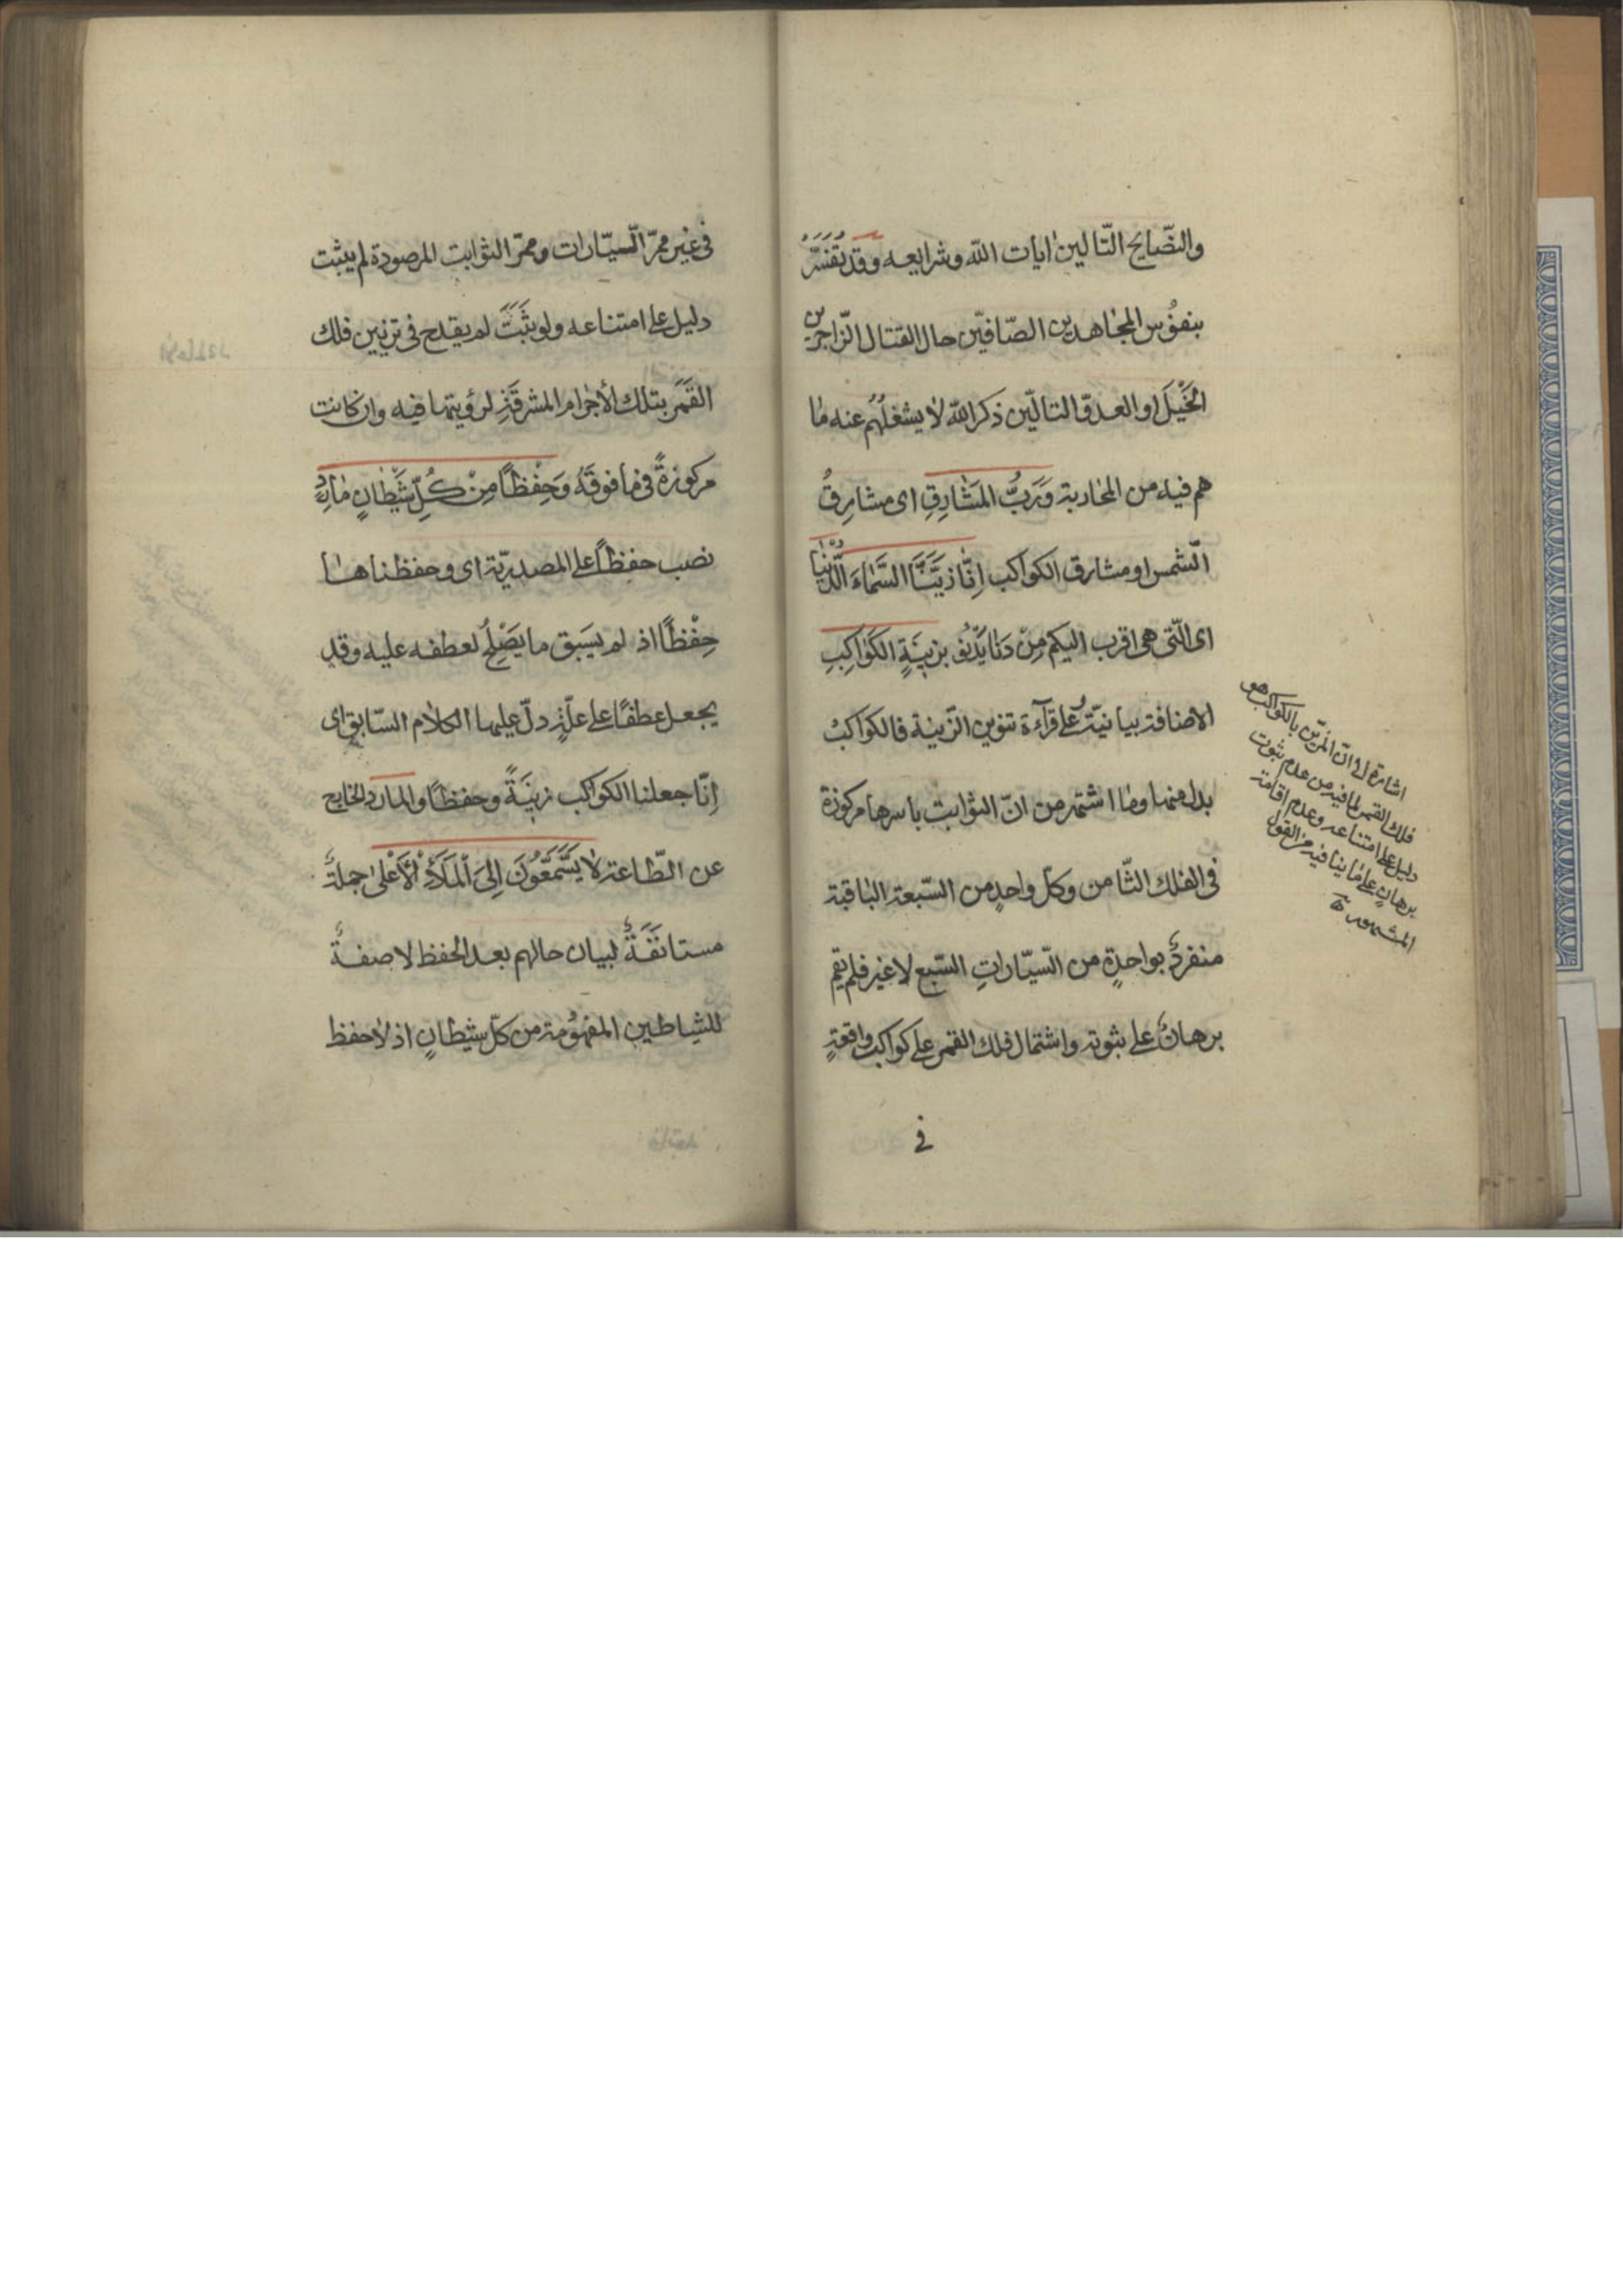 والنصّايح التّالين اٰيات اللّه وشرايعه وقد تُفَسَّرُ
بنفُوس المجٰاهدين الصّافيّن حال القتال الزّاجرين
الخَيْلَ او العدوّ التالّين ذكر اللّه لا يشغلُهُم عنه مٰا
هم فيه من المحٰاربة وَرَبُّ المَشٰارِقِ اى مشارِقُ
الشّمس او مشارق الكواكب اِنّٰا زيَّنَّا السَّمٰاءَ الدُّنْيٰا
اى الّتى هى اقرب اليكم مِنْ دَنٰا يَدْنُو بزينَةٍ الكَوٰاكِبِ
الاضافة بيانيّةٌ وعلى قرآءة تنوين الزّينة فالكواكبُ
بدل منها ومٰا اشتهر من انّ الثوٰابت باسرها مركوزة
فى الفلك الثّامن وكلّ واحدٍ من السّبعة البٰاقية
منفردٌ بواحدةٍ من السيّٰاراتِ السّبع لا غير فلم يقم
برهانٌ على ثبوته واشتمال فلك القمر على كواكب واقعةٍ
فى
اشارة الى انّ المزيّن بالكواكب هو
فلك القمر لما فيه من عدم ثبوت
دليل على امتناعه وعدم اقامة
برهانٍ على مٰا ينافيه من القول
المشهور
فى غير ممرّ السيّارات وممرّ الثوابت المرصودة لم يثبت
دليل على امتناعه ولو ثَبَتَ لم يقدح فى تزيين فلك
القَمَر بتلك الأجرٰام المشرقة لرؤيتها فيه وان كانت
مركوزةً فى مٰا فوقَهُ وَحِفْظًا مِنْ كُلِّ شَيْطٰانٍ مٰارِدٍ
نصب حفظًا على المصدريّة اى وحفظناهٰا
حِفْظًا اذ لم يَسبق ما يَصْلُحُ لعطفه عليه وقد
يجعل عطفًا على علّةٍ دلّ عليها الكلٰام السّابق اى
اِنّا جعلنا الكواكب زينَةً وحفظًا والمارد الخارج
عن الطّاعة لٰا يَسَّمَّعُونَ اِلَى المَلَأِ الأَعْلىٰ جملةٌ
مستانفَةٌ لبيان حالهم بعد الحفظ لا صفةٌ
للشياطين المفهُومة من كلّ شيطٰانٍ اذ لٰا حفظ